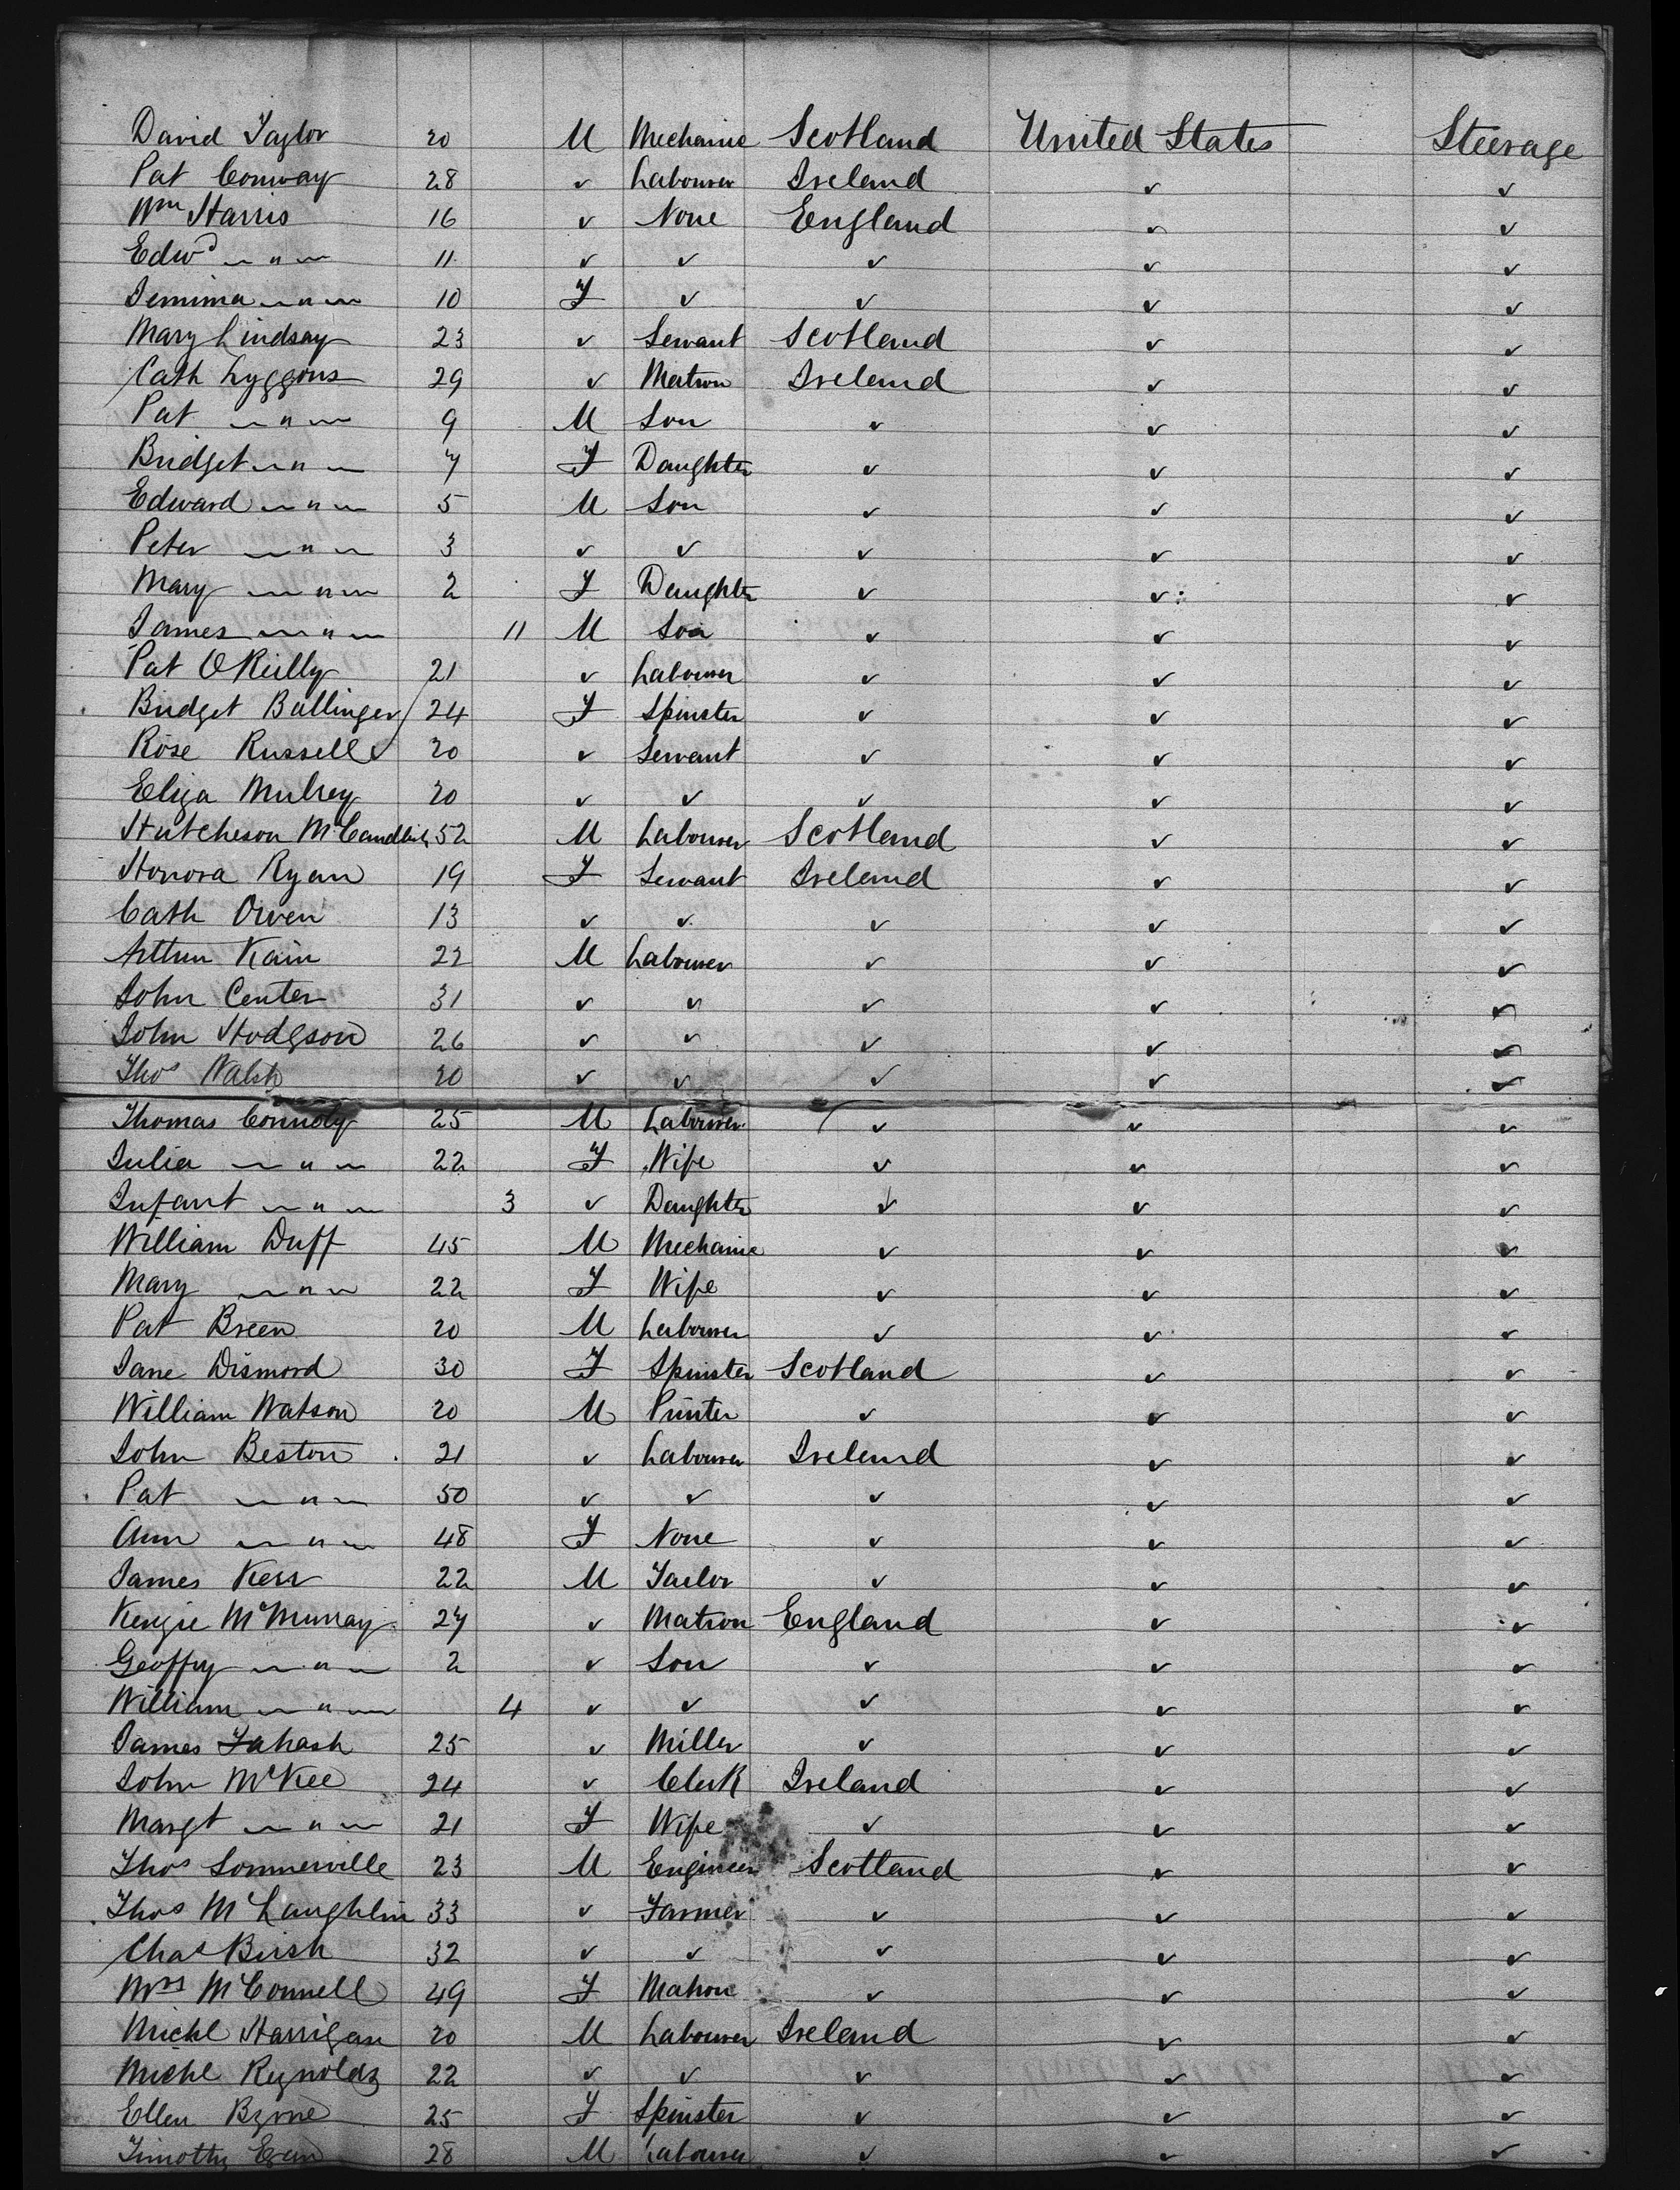 David Taylor 20 M Mechanic Scotland United States Steerage
Pat Conway 28 ✓ Labourer Ireland ✓ ✓
Wm Harris 16 ✓ None England ✓ ✓
Edwd — " — 11 ✓ ✓ ✓ ✓ ✓
Jemima — " — 10 F ✓ ✓ ✓ ✓
Mary Lindsay 23 ✓ Servant Scotland ✓ ✓
Cath Lyggons 29 ✓ Matron Ireland ✓ ✓
Pat — " — 9 M Son ✓ ✓ ✓
Bridget — " — 7 F Daughter ✓ ✓ ✓
Edward — " — 5 M Son ✓ ✓ ✓
Peter — " — 3 ✓ ✓ ✓ ✓ ✓
Mary — " — 2 F Daughter ✓ ✓ ✓
James — " — 11 M Son ✓ ✓ ✓
Pat O'Reilly 21 ✓ Labourer ✓ ✓ ✓
Bridget Ballinger 24 F Spinster ✓ ✓ ✓
Rose Russell 20 ✓ Servant ✓ ✓ ✓
Eliza Mulrey 20 ✓ ✓ ✓ ✓ ✓
Hutcheson McCandlish 52 M Labourer Scotland ✓ ✓
Honora Ryan 19 F Servant Ireland ✓ ✓
Cath Owen 13 ✓ ✓ ✓ ✓ ✓
Arthur Kain 22 M Labourer ✓ ✓ ✓
John Center 31 ✓ " ✓ ✓ ✓
John Hodgson 26 ✓ " ✓ ✓ ✓
Thos Walsh 20 ✓ ✓ ✓ ✓ ✓
Thomas Connoly 25 M Labourer ✓ ✓ ✓
Julia — " — 22 F Wife ✓ ✓ ✓
Infant — " — 3 ✓ Daughter ✓ ✓ ✓
William Duff 45 M Mechanic ✓ ✓ ✓
Mary — " — 22 F Wife ✓ ✓ ✓
Pat Breen 20 M Labourer ✓ ✓ ✓
Jane Dismord 30 F Spinster Scotland ✓ ✓
William Watson 20 M Printer ✓ ✓ ✓
John Beston 21 ✓ Labourer Ireland ✓ ✓
Pat — " — 50 ✓ ✓ ✓ ✓ ✓
Ann — " — 48 F None ✓ ✓ ✓
James Kerr 22 M Tailor ✓ ✓ ✓
Kenzie McMurray 27 ✓ Matron England ✓ ✓
Geoffry — " — 2 ✓ Son ✓ ✓ ✓
William — " — 4 ✓ ✓ ✓ ✓ ✓
James Fahash 25 ✓ Miller ✓ ✓ ✓
John McKee 24 ✓ Clerk Ireland ✓ ✓
Margt — " — 21 F Wife ✓ ✓ ✓
Thos Sommerville 23 M Engineer Scotland ✓ ✓
Thos McLaughlin 33 ✓ Farmer ✓ ✓ ✓
Chas Birsh 32 ✓ ✓ ✓ ✓ ✓
Mrs McConnell 49 F Matron ✓ ✓ ✓
Michl Harrigan 20 M Labourer Ireland ✓ ✓
Michl Reynolds 22 ✓ ✓ ✓ ✓ ✓
Ellen Byrne 25 F Spinster ✓ ✓ ✓
Timothy Egan 28 M Labourer ✓ ✓ ✓